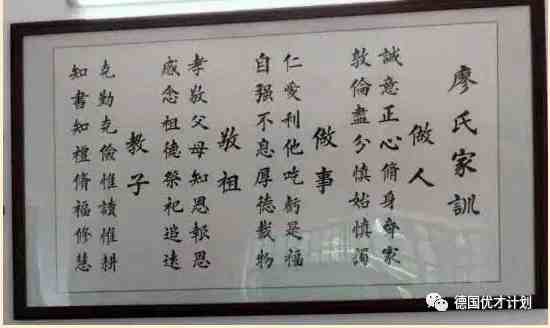 廖氏家訓
做人
誠意正心脩身齊家
敦倫盡分慎始慎獨
做事
仁愛利他吃虧是福
自强不息厚德載物
敬祖
孝敬父母知恩報恩
感念祖德祭祀追遠
教子
克勤克儉惟讀惟耕
知書知禮脩福修慧
德国优才计划